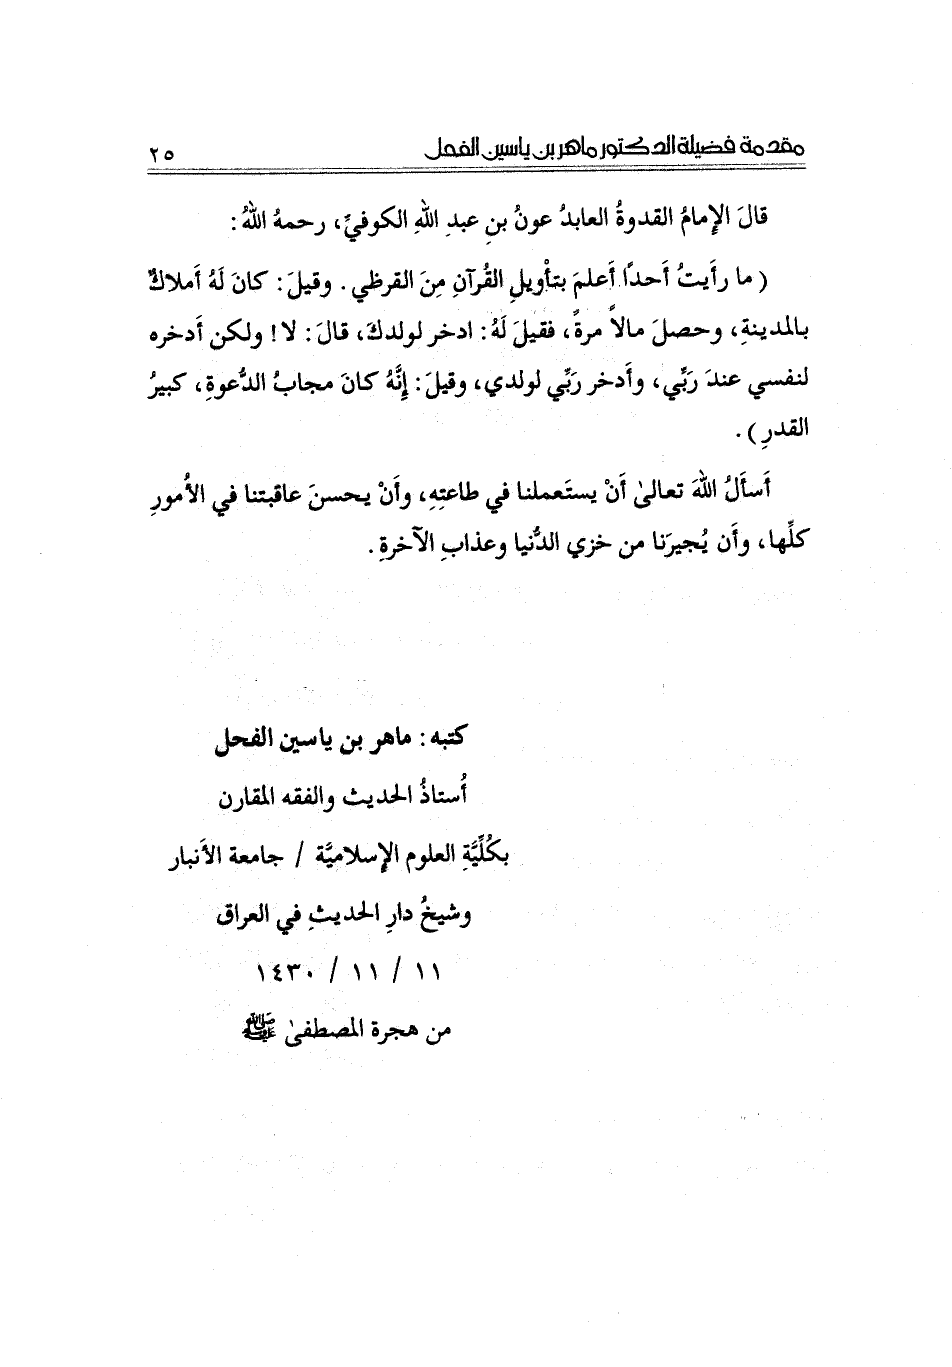 مقدمة فضيلة الدكتور ماهر بن ياسين الفحل ٢٥
قالَ الإمامُ القدوةُ العابدُ عونُ بنِ عبدِ اللهِ الكوفيِّ، رحمهُ اللهُ:
( ما رأَيتُ أحدًا أَعلمَ بتأويلِ القُرآنِ مِنَ القرظي. وقيلَ: كانَ لَهُ أملاكٌ
بالمدينةِ، وحصلَ مالاً مرةً، فقيلَ لَهُ: ادخر لولدكَ، قالَ: لا! ولكن أَدخره
لنفسي عندَ رَبِّي، وأَدخر رَبِّي لولدي، وقيلَ: إنَّهُ كانَ مجابُ الدَّعوةِ، كبيرُ
القدرِ).
أَسأَلُ اللهَ تعالىٰ أَنْ يستَعملنا في طاعتِهِ، وأَنْ يحسنَ عاقبتنا في الأُمورِ
كلِّها، وأَن يُجيرَنا من خزي الدُّنيا وعذابِ الآخرةِ.
كتبه: ماهر بن ياسين الفحل
أُستاذُ الحديث والفقه المقارن
بكُلِّيَّةِ العلوم الإسلاميَّة / جامعة الأَنبار
وشيخُ دارِ الحديثِ في العراق
١١ / ١١ / ١٤٣٠
من هجرة المصطفىٰ ﷺ